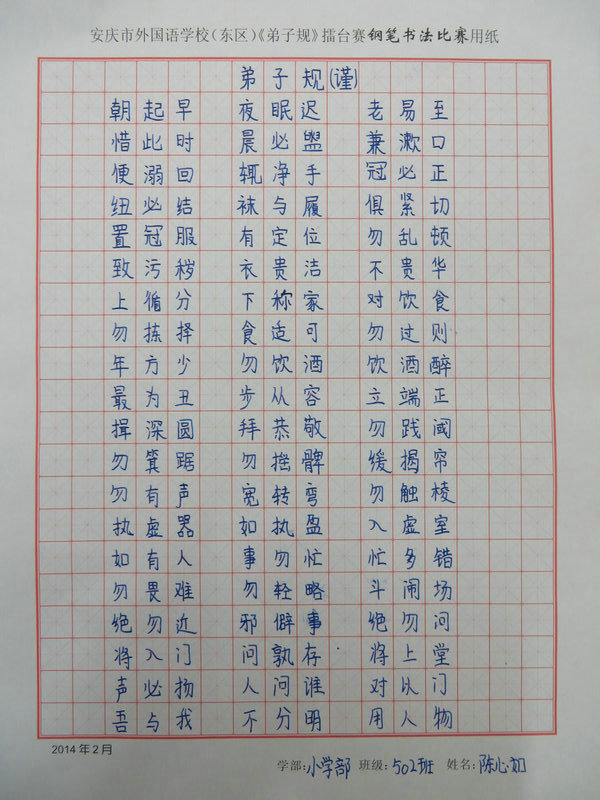 安庆市外国语学校(东区)《弟子规》擂台赛钢笔书法比赛用纸
弟子规(谨)
朝起早 夜眠迟 老易至
惜此时 晨必盥 兼漱口
便溺回 辄净手 冠必正
纽必结 袜与履 俱紧切
置冠服 有定位 勿乱顿
致污秽 衣贵洁 不贵华
上循分 下称家 对饮食
勿拣择 食适可 勿过则
年方少 勿饮酒 饮酒醉
最为丑 步从容 立端正
揖深圆 拜恭敬 勿践阈
勿箕踞 勿摇髀 缓揭帘
勿有声 宽转弯 勿触棱
执虚器 如执盈 入虚室
如有人 事勿忙 忙多错
勿畏难 勿轻略 斗闹场
绝勿近 邪僻事 绝勿问
将入门 问孰存 将上堂
声必扬 人问谁 对以门
吾与我 不分明 用人物
2014年2月
学部:小学部 班级:502班 姓名:陈心如